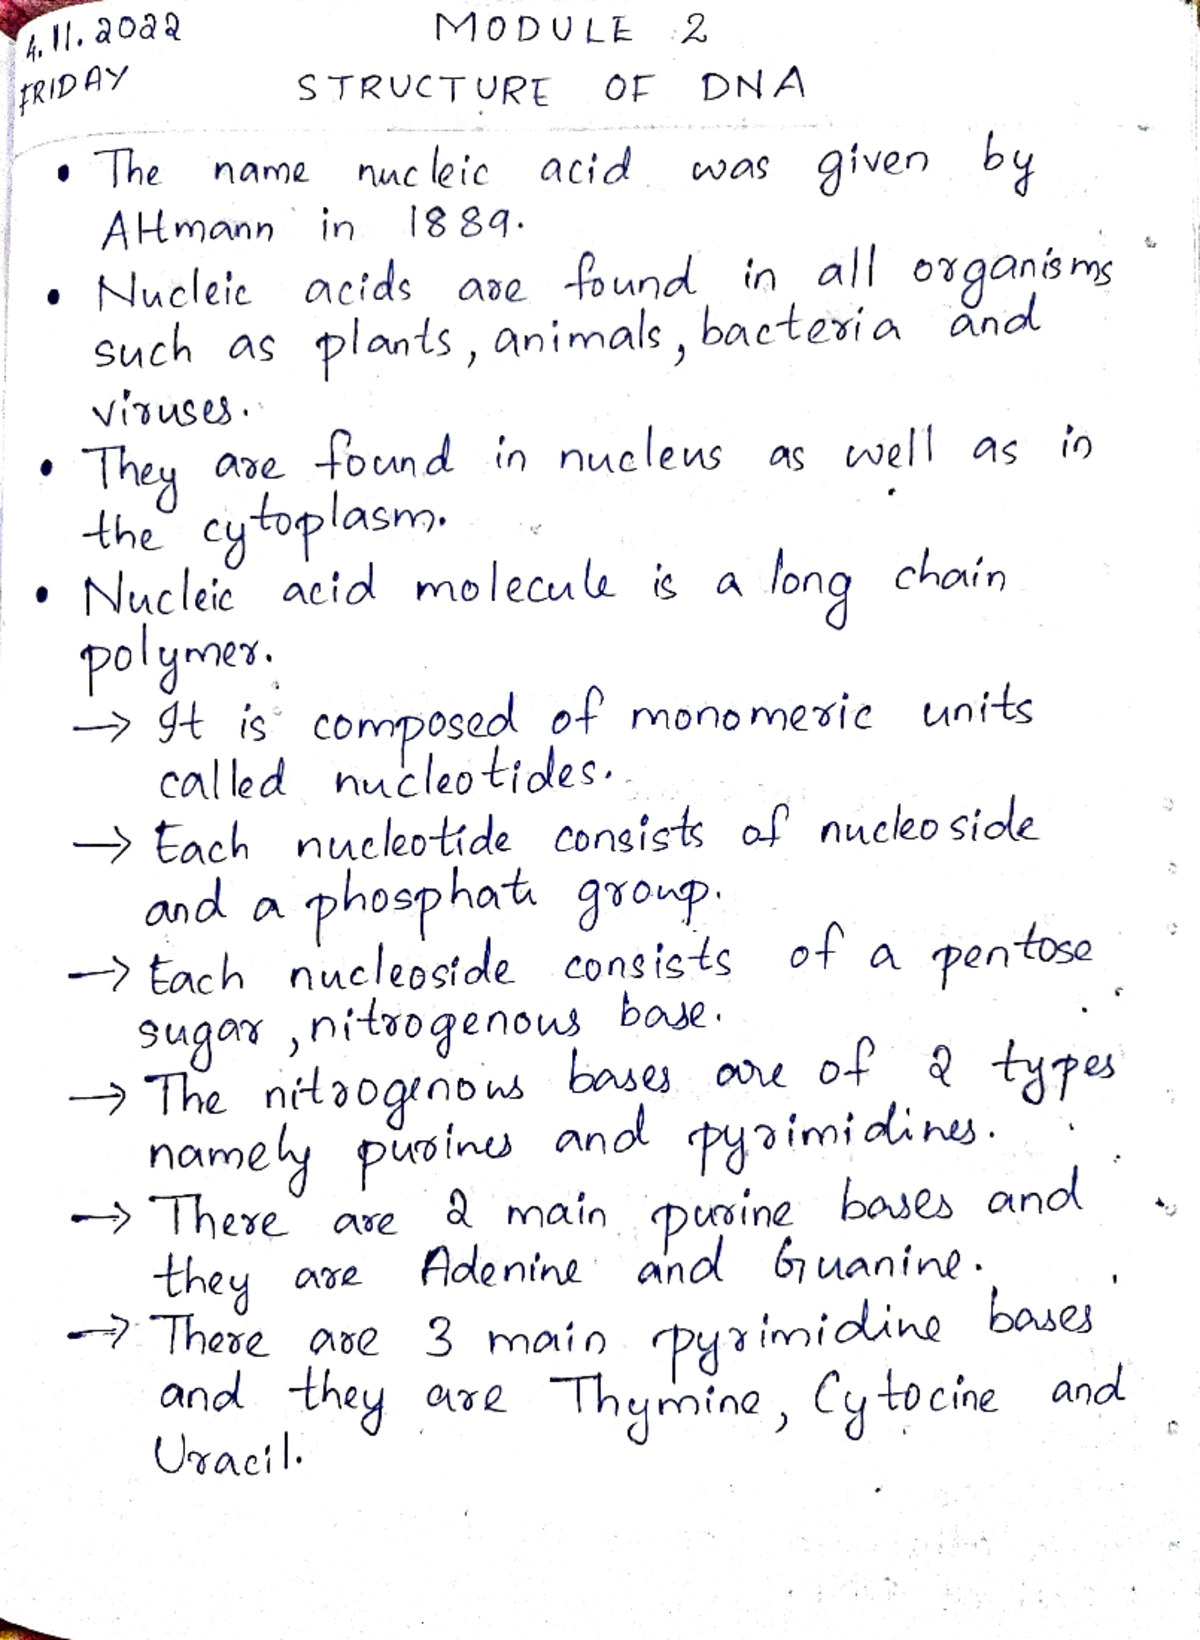 4.11.2022
FRIDAY
MODULE 2
STRUCTURE OF DNA
• The name nucleic acid was given by
Altmann in 1889.
• Nucleic acids are found in all organisms
such as plants, animals, bacteria and
viruses.
• They are found in nucleus as well as in
the cytoplasm.
• Nucleic acid molecule is a long chain
polymer.
→ It is composed of monomeric units
called nucleotides.
→ Each nucleotide consists of nucleoside
and a phosphate group.
→ Each nucleoside consists of a pentose
sugar, nitrogenous base.
→ The nitrogenous bases are of 2 types
namely purines and pyrimidines.
→ There are 2 main purine bases and
they are Adenine and Guanine.
→ There are 3 main pyrimidine bases
and they are Thymine, Cytocine and
Uracil.